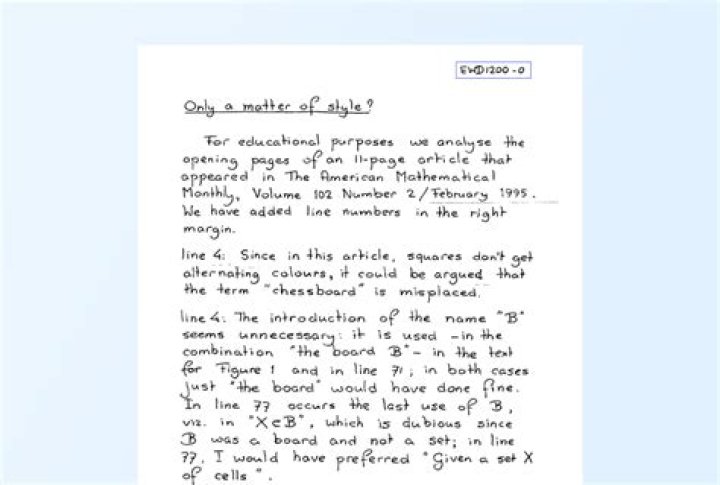 EWD1200-0
Only a matter of style?
For educational purposes we analyse the
opening pages of an 11-page article that
appeared in The American Mathematical
Monthly, Volume 102 Number 2 / February 1995.
We have added line numbers in the right
margin.
line 4: Since in this article, squares don't get
alternating colours, it could be argued that
the term "chessboard" is misplaced.
line 4: The introduction of the name "B"
seems unnecessary: it is used -in the
combination "the board B"- in the text
for Figure 1 and in line 71; in both cases
just "the board" would have done fine.
In line 77 occurs the last use of B,
viz. in "X∈B", which is dubious since
B was a board and not a set; in line
77, I would have preferred "Given a set X
of cells".